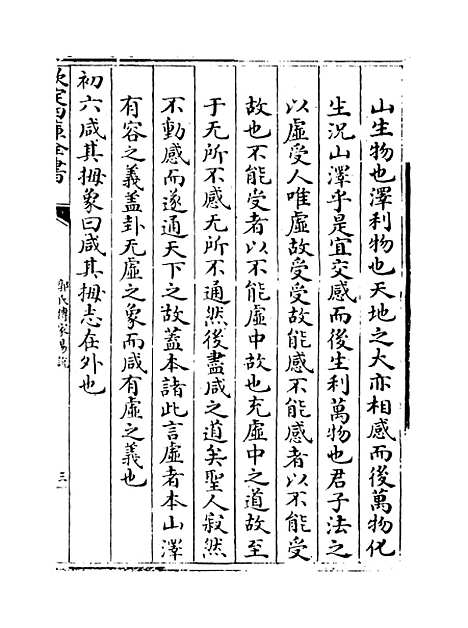 山生物也澤利物也天地之大亦相感而後萬物化
生況山澤乎是宜交感而後生利萬物也君子法之
以虛受人唯虛故受受故能感不能感者以不能受
故也不能受者以不能虛中故也充虛中之道故至
于无所不感无所不通然後盡咸之道矣聖人寂然
不動感而遂通天下之故蓋本諸此言虛者本山澤
有容之義蓋卦无虛之象而咸有虛之義也
初六咸其拇象曰咸其拇志在外也
欽定四庫全書
郭氏傳家易說
三